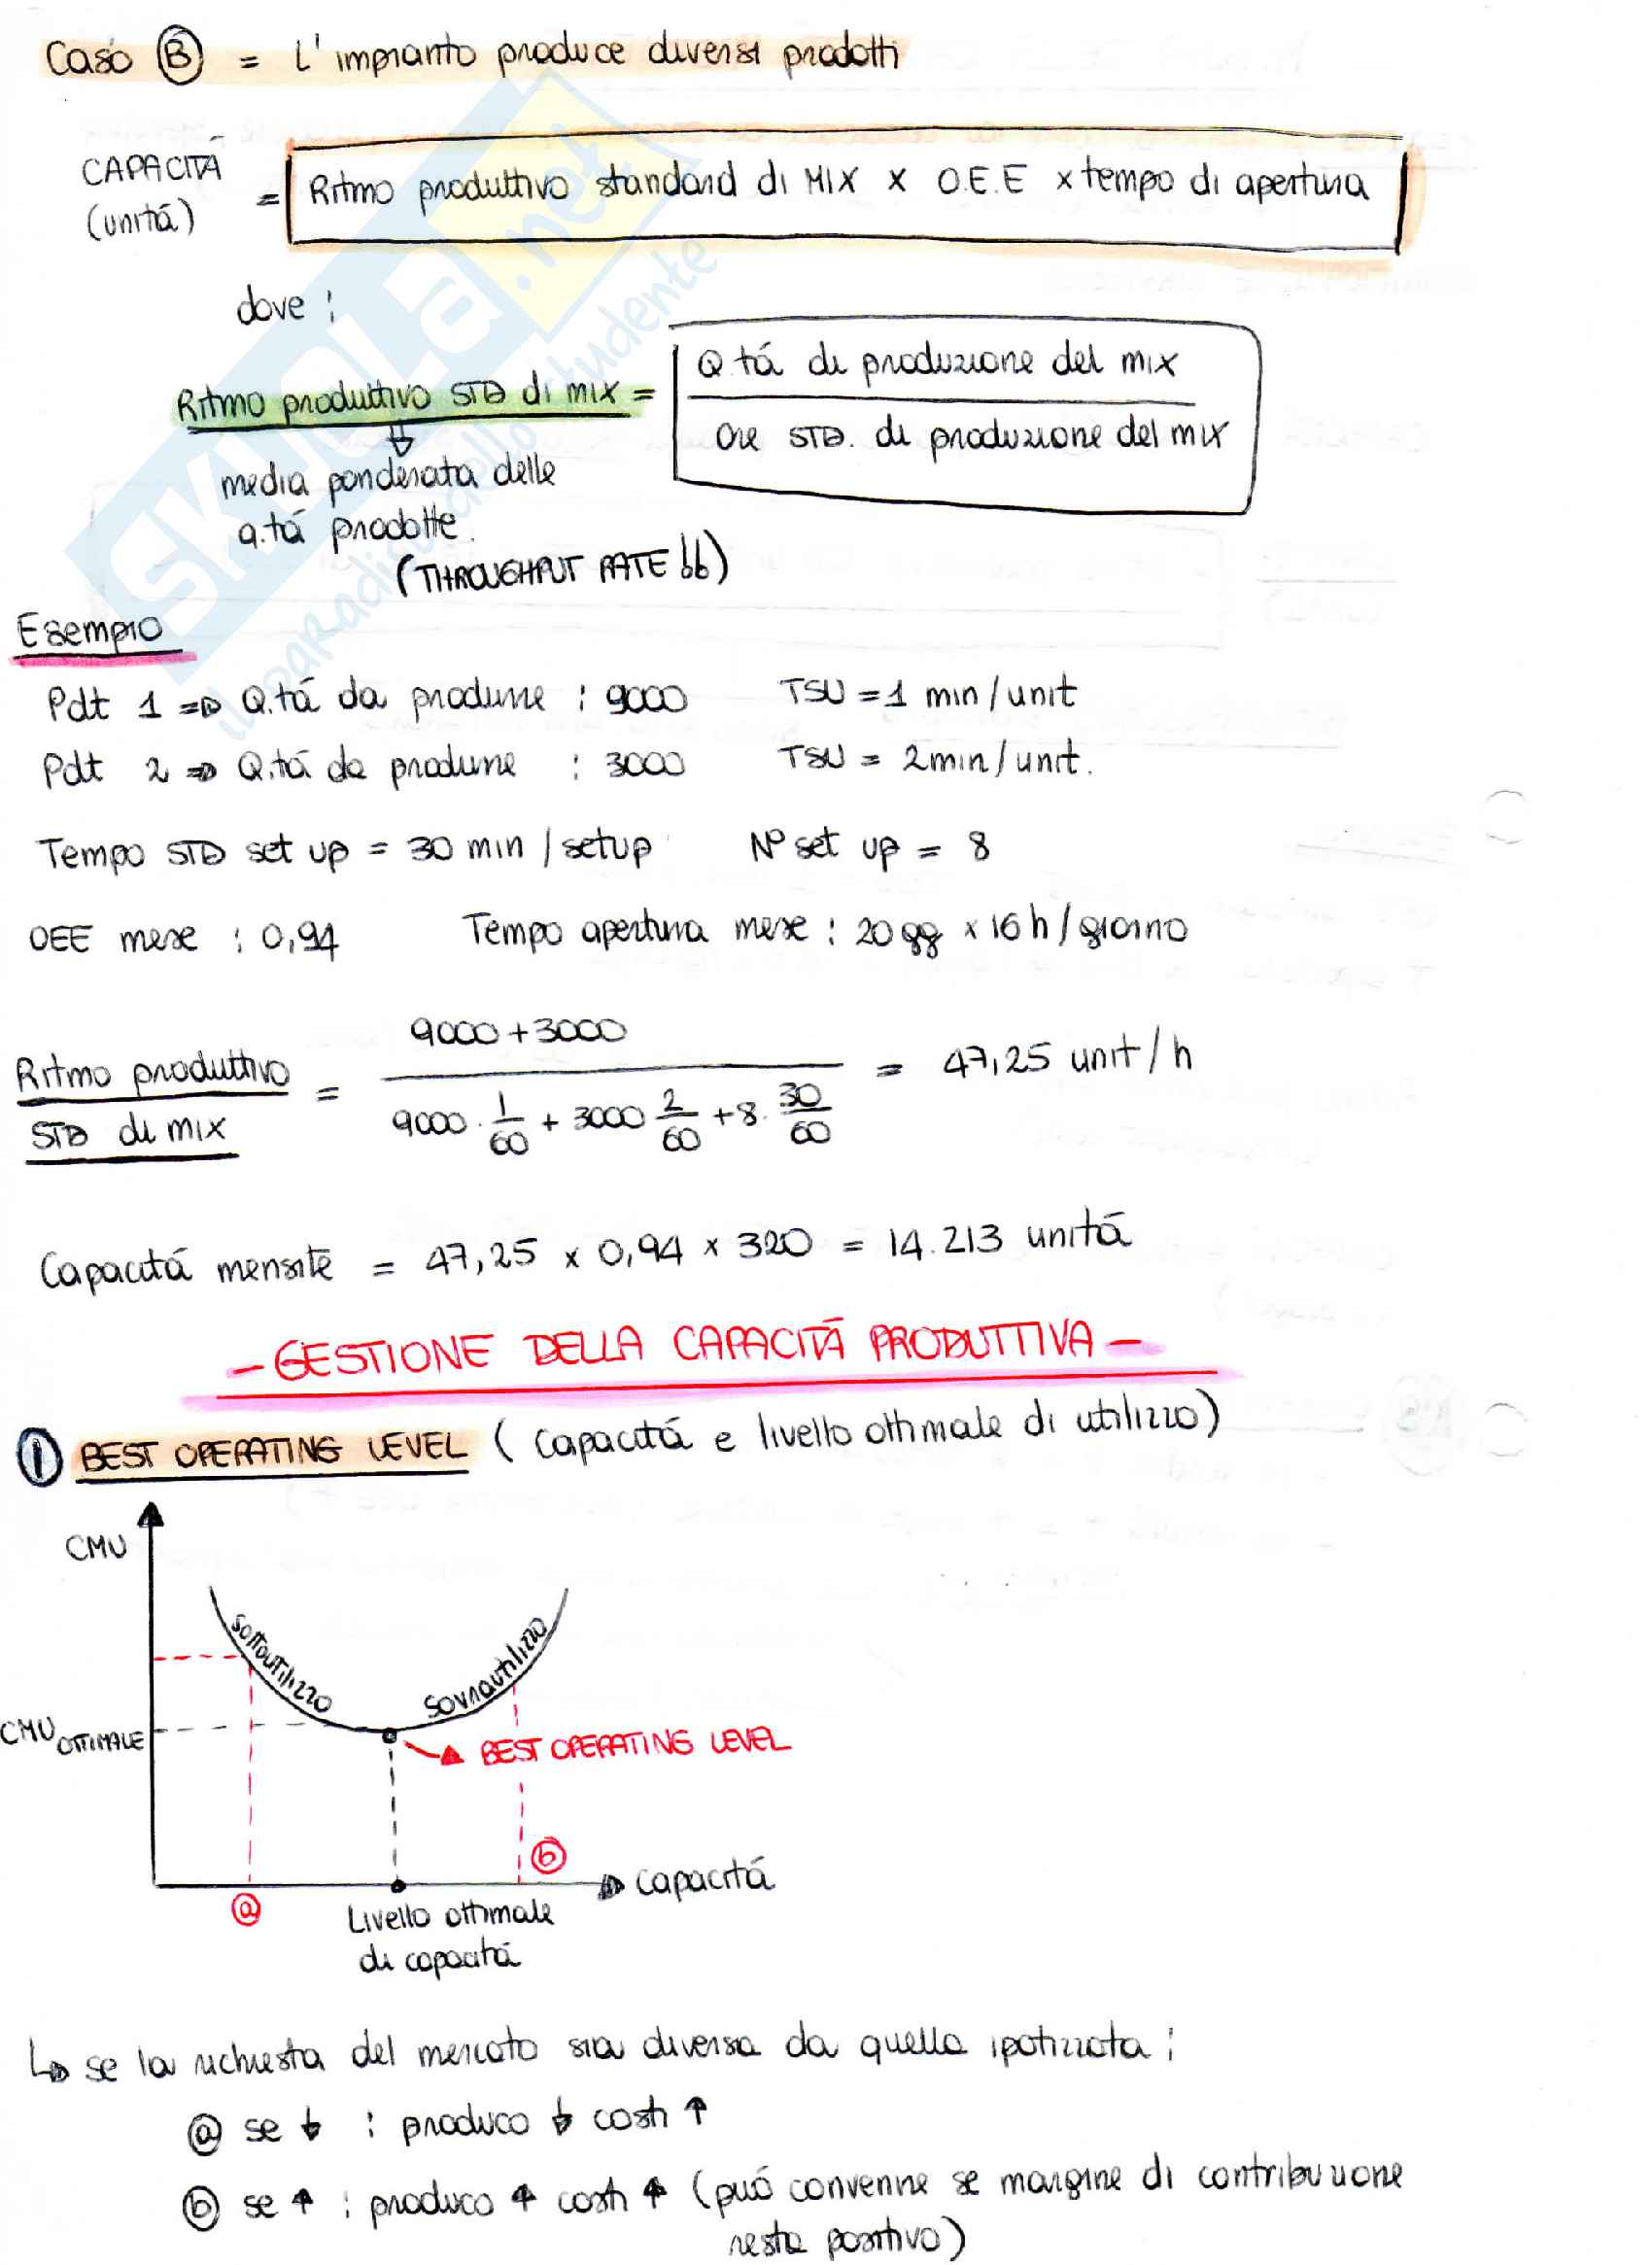 Caso B = L'impianto produce diversi prodotti
CAPACITÁ (unitá) = Ritmo produttivo standard di MIX x O.E.E x tempo di apertura
dove :
Ritmo produttivo STD di mix = Q.tá di produzione del mix / Ore STD. di produzione del mix
media ponderata delle
q.tá prodotte.
(THROUGHPUT RATE !!)
Esempio
Pdt 1 => Q.tá da produrre : 9000 TSU = 1 min/unit
Pdt 2 => Q.tá da produrre : 3000 TSU = 2min/unit.
Tempo STD set up = 30 min/setup N° set up = 8
OEE mese : 0,94 Tempo apertura mese : 20 gg x 16 h/giorno
Ritmo produttivo STD di mix = 9000+3000 / 9000 · 1/60 + 3000 2/60 + 8 · 30/60 = 47,25 unit/h
Capacitá mensile = 47,25 x 0,94 x 320 = 14.213 unitá
- GESTIONE DELLA CAPACITÁ PRODUTTIVA -
1 BEST OPERATING LEVEL (capacitá e livello ottimale di utilizzo)
CMU
Sottoutilizzo
Sovrautilizzo
CMU OTTIMALE
BEST OPERATING LEVEL
b
capacitá
a
Livello ottimale
di capacitá
↳ se la richiesta del mercato sia diversa da quella ipotizzata :
a se ↓ : produco ↓ costi ↑
b se ↑ : produco ↑ costi ↑ (puó convenire se margine di contribuzione
resta positivo)
SKUOLA.net
il paradiso dello studente